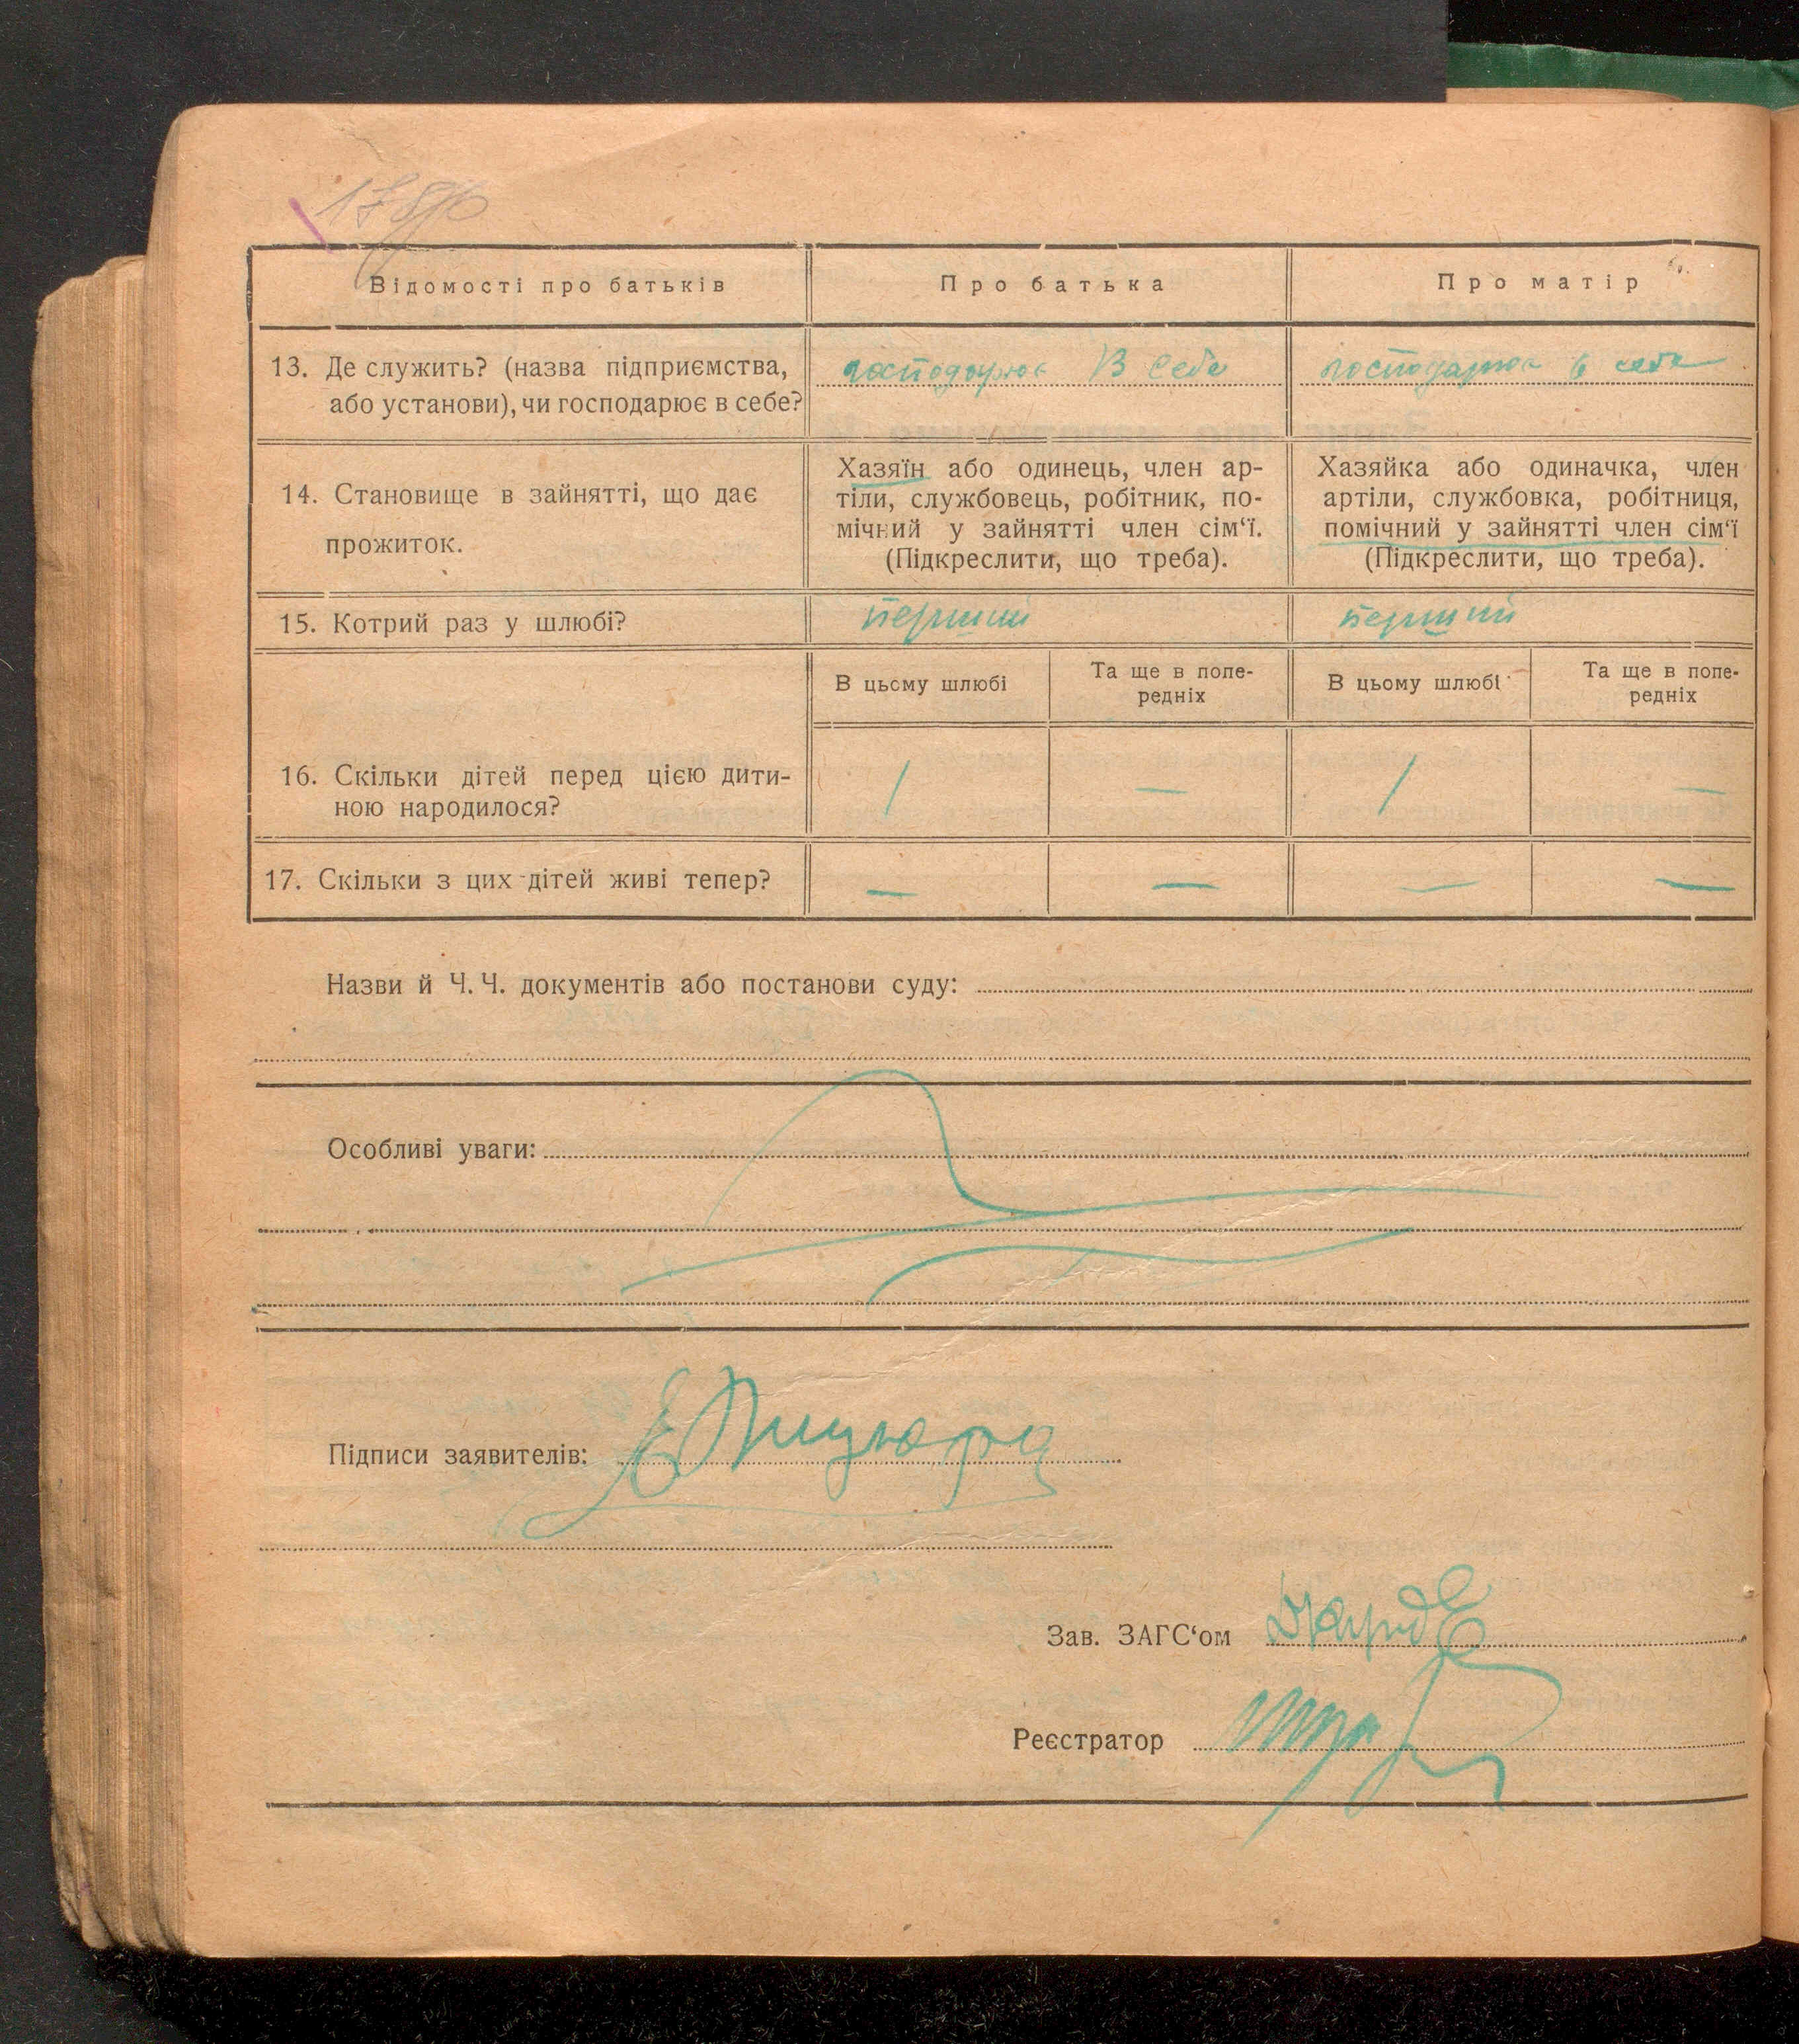 Відомості про батьків
Про батька
Про матір
13. Де служить? (назва підприємства,
або установи), чи господарює в себе?
господарює В себе
господарює в себе
14. Становище в зайнятті, що дає
прожиток.
Хазяїн або одинець, член ар-
тіли, службовець, робітник, по-
мічний у зайнятті член сім‘ї.
(Підкреслити, що треба).
Хазяйка або одиначка, член
артіли, службовка, робітниця,
помічний у зайнятті член сім‘ї
(Підкреслити, що треба).
15. Котрий раз у шлюбі?
перший
перший
В цьому шлюбі
Та ще в попе-
редніх
В цьому шлюбі
Та ще в попе-
редніх
16. Скільки дітей перед цією дити-
ною народилося?
1
—
1
—
17. Скільки з цих дітей живі тепер?
—
—
—
—
Назви й Ч. Ч. документів або постанови суду:
Особливі уваги:
Підписи заявителів:
Зав. ЗАГС‘ом
Реєстратор